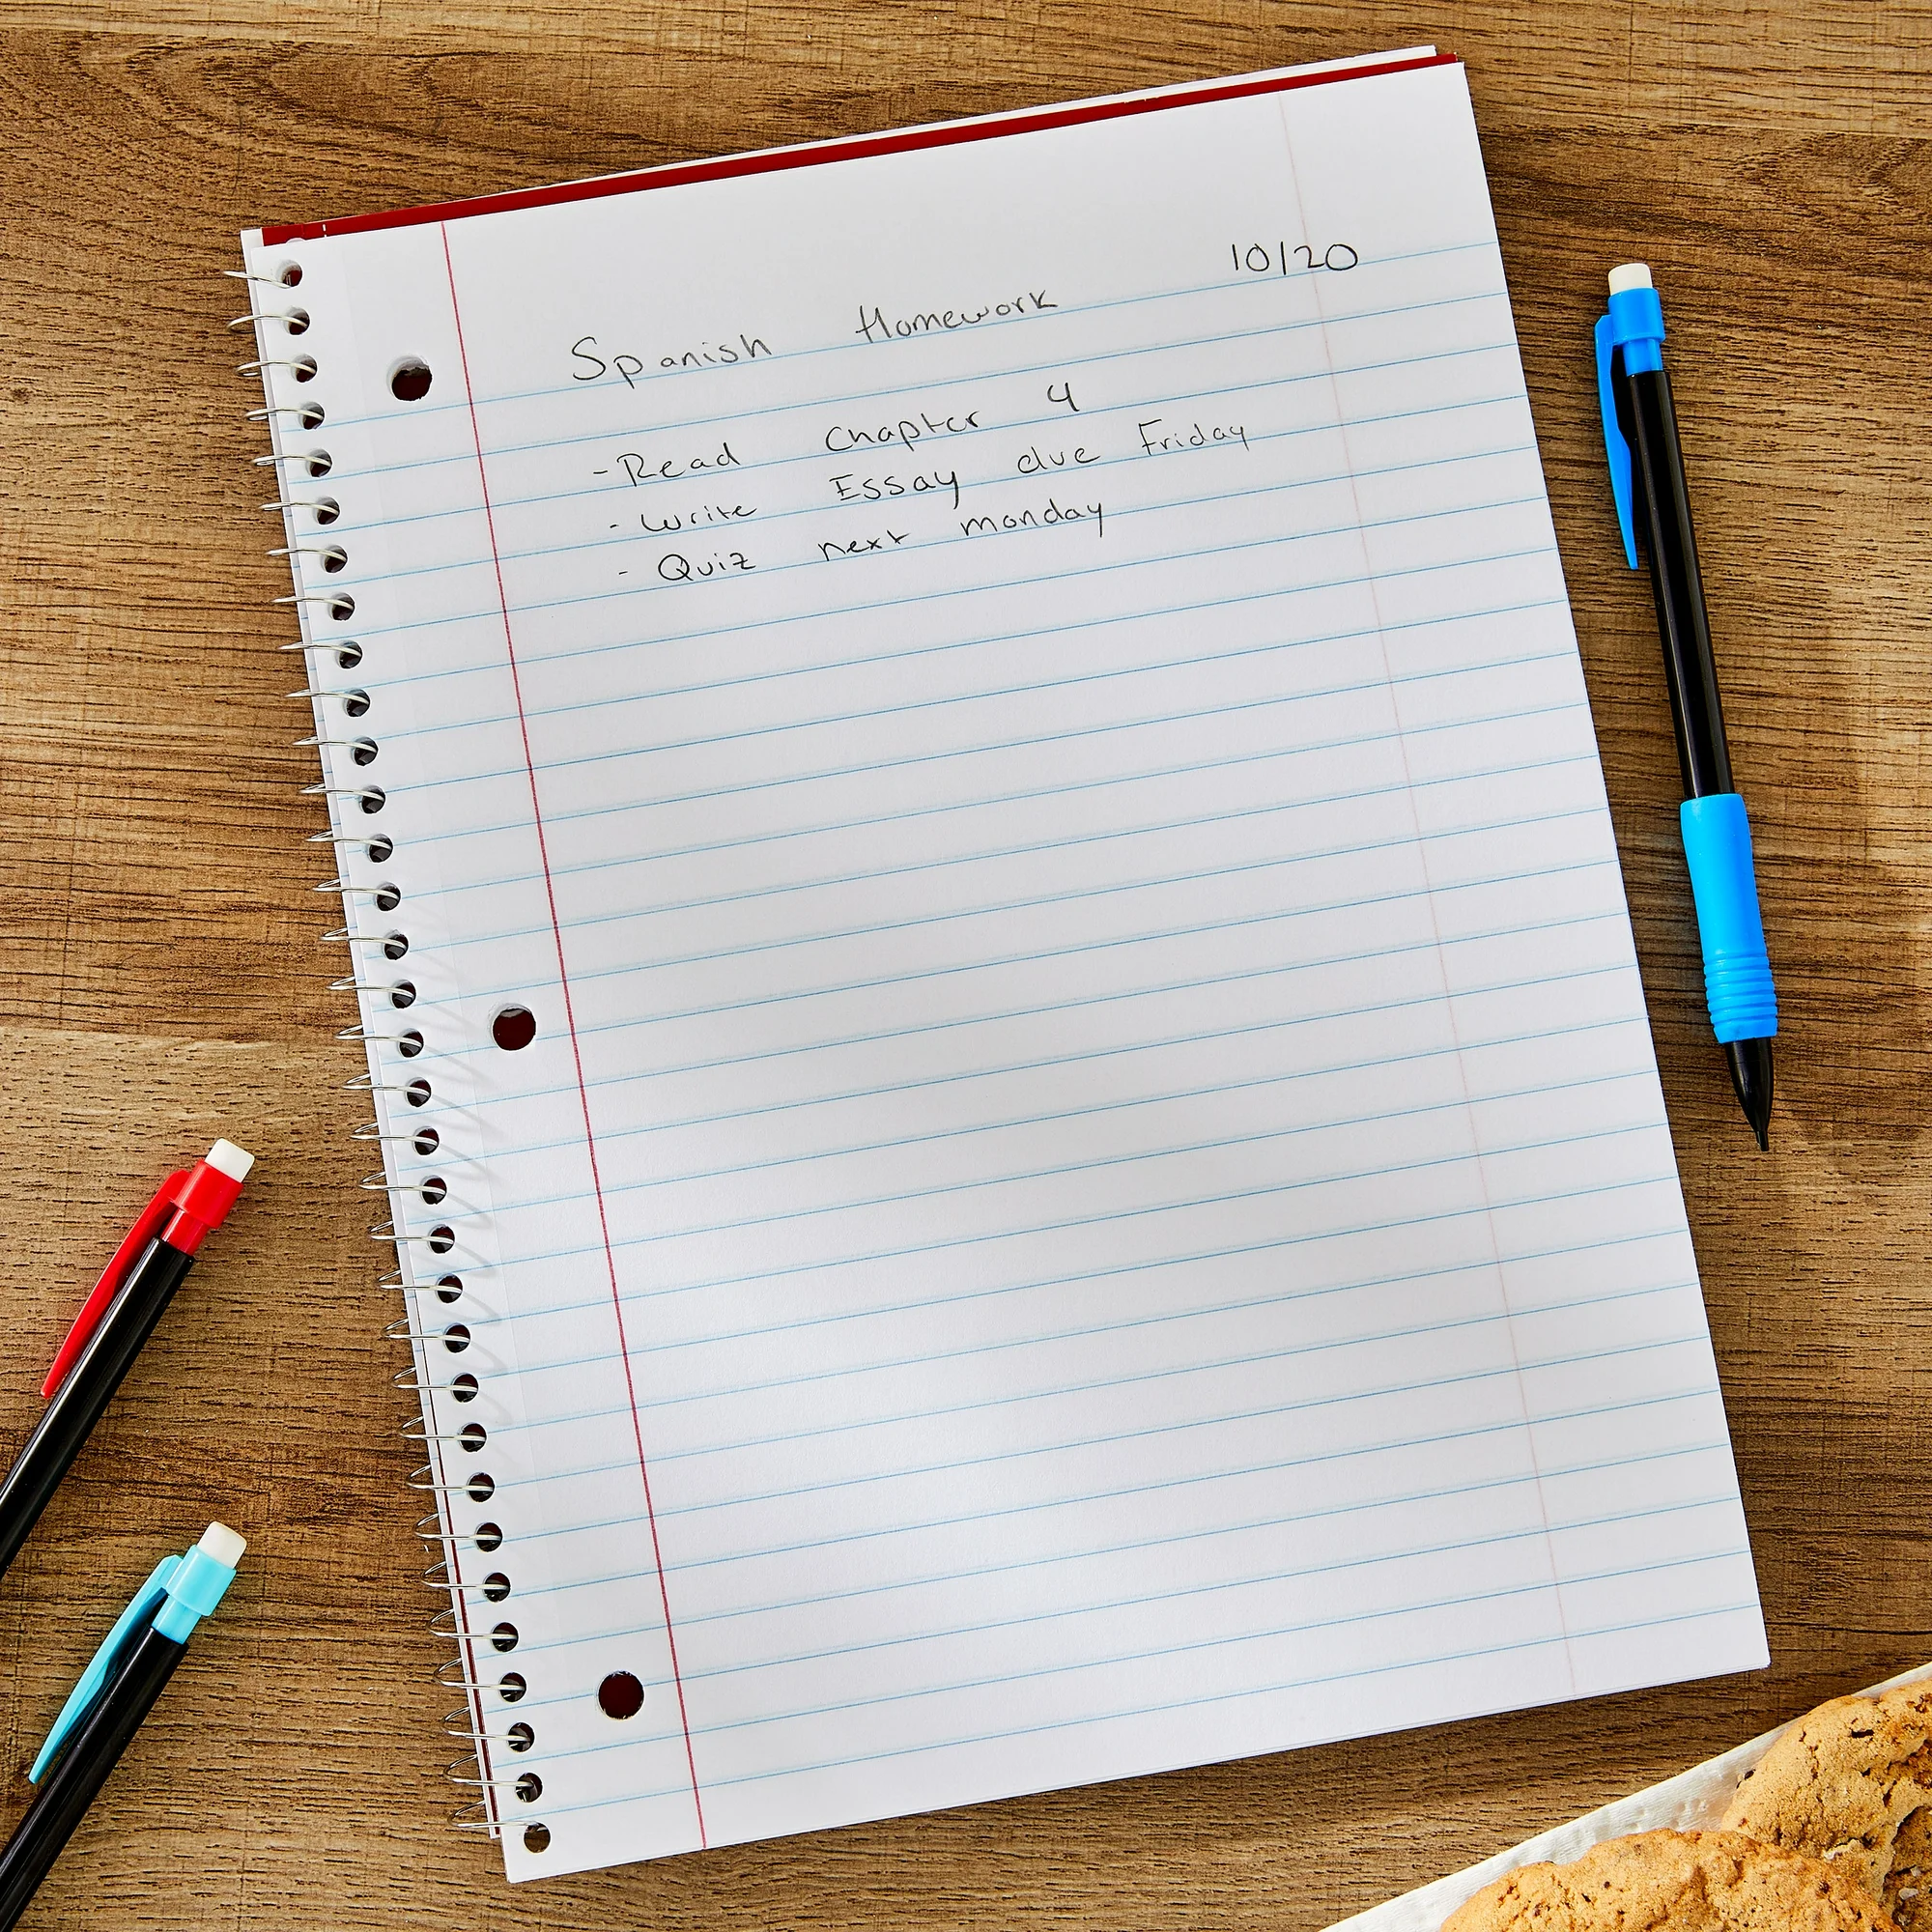 10/20
Spanish Homework
- Read Chapter 4
- Write Essay due Friday
- Quiz next monday